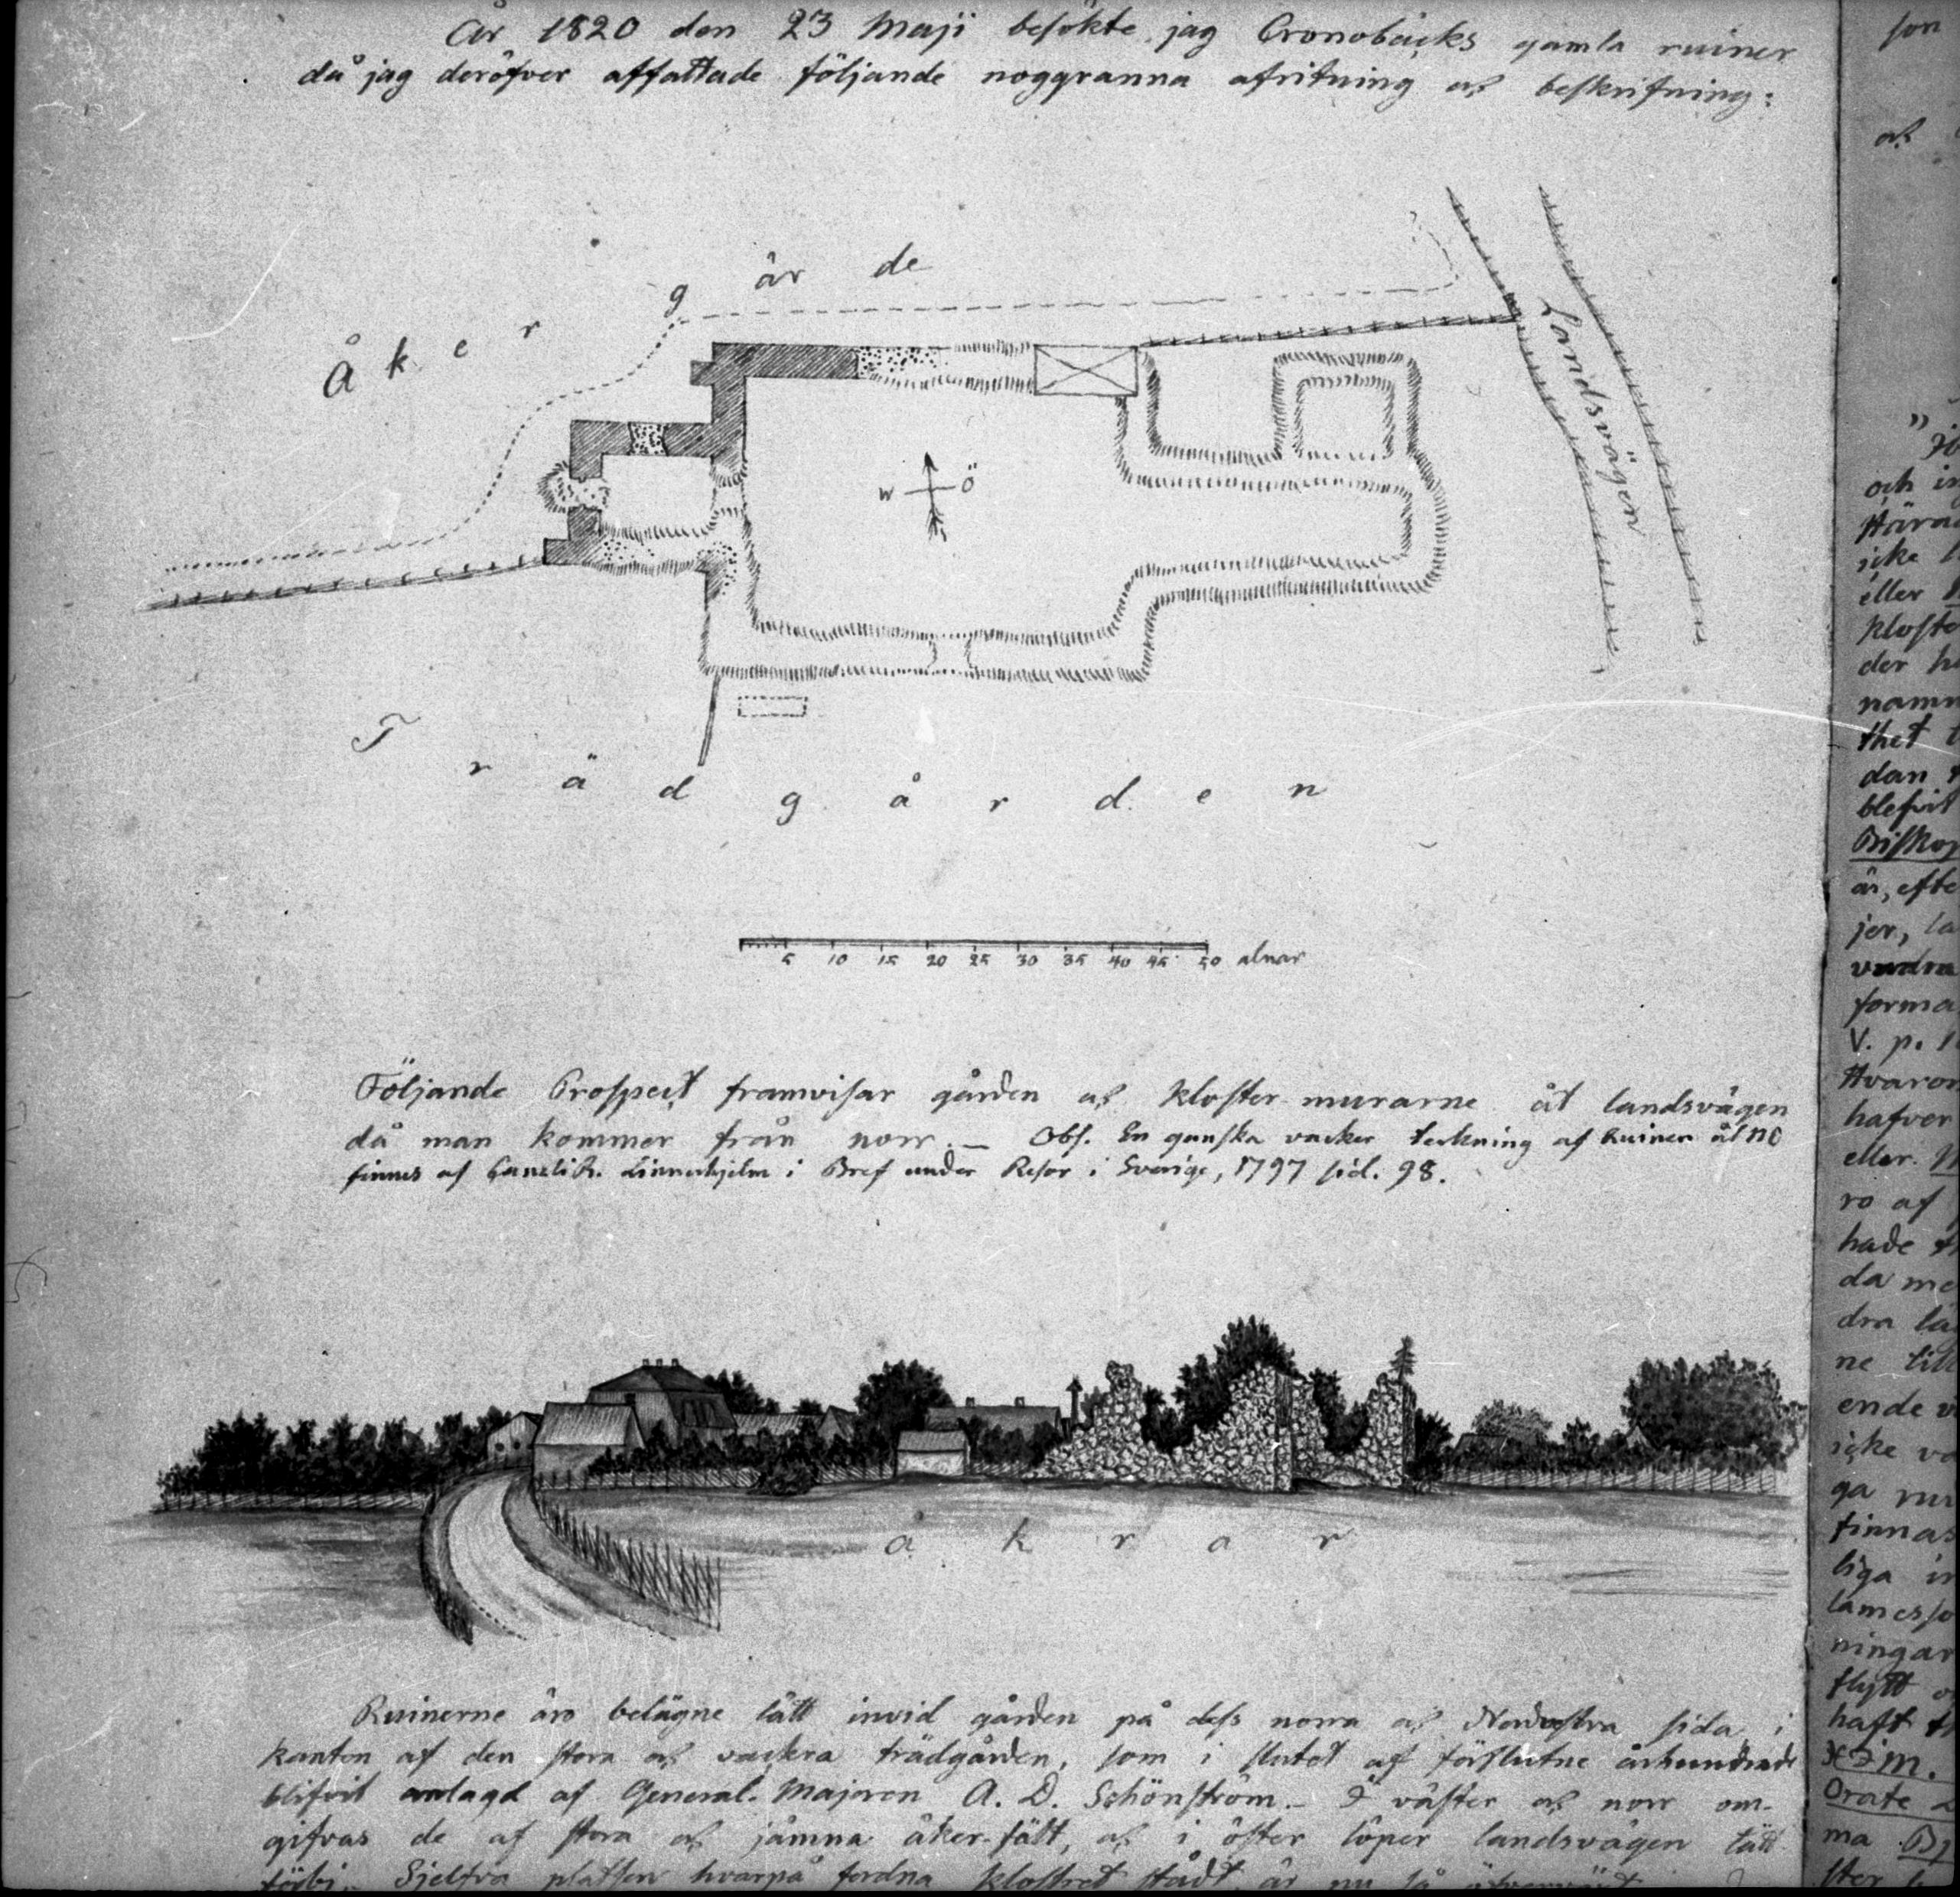 År 1820 den 23 Maji besökte jag Cronobäcks gamla ruiner
då jag deröfver affattade följande noggranna afritning och beskrifning:
Åkergärde
Landsvägen
W Ö
Trädgården
5 10 15 20 25 30 35 40 45 50 alnar
Följande Prospect framvisar gården och kloster murarne åt landsvägen
då man kommer från norr. — Obs. En ganska vacker teckning af Ruinen åt NO
finnes af Canslir. Linnerhjelm i Bref under Resor i Sverige, 1797 sid. 98.
åkrar
Ruinerne äro belägne tätt invid gården på dess norra och Nordvestra sida i
kanten af den stora och vackra trädgården, som i slutet af förflutne århundrade
blifvit anlagd af General-Majoren A. D. Schönström. — I väster och norr om-
gifvas de af stora och jämna åker-fält, och i öster löper landsvägen tätt
förbi. Sjelfva platsen hvarpå fordna klostret stådt, är nu så
son
och
och in
icke
eller
kloste
der h
namn
thet
dan
blefvit
Biskop
är, efte
jer, la
forma
V. p. 1
Hvaron
hafver
eller
ro af
hade
da me
dra la
ne till
ende v
icke v
ga
finnas
liga in
ningar
flytt
haft
Orate
ma
ster